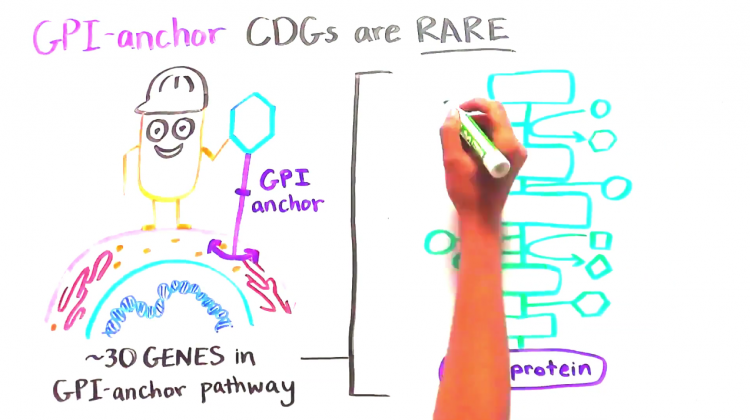 GPI-anchor CDGs are RARE
GPI
anchor
~30 GENES in
GPI-anchor pathway
protein